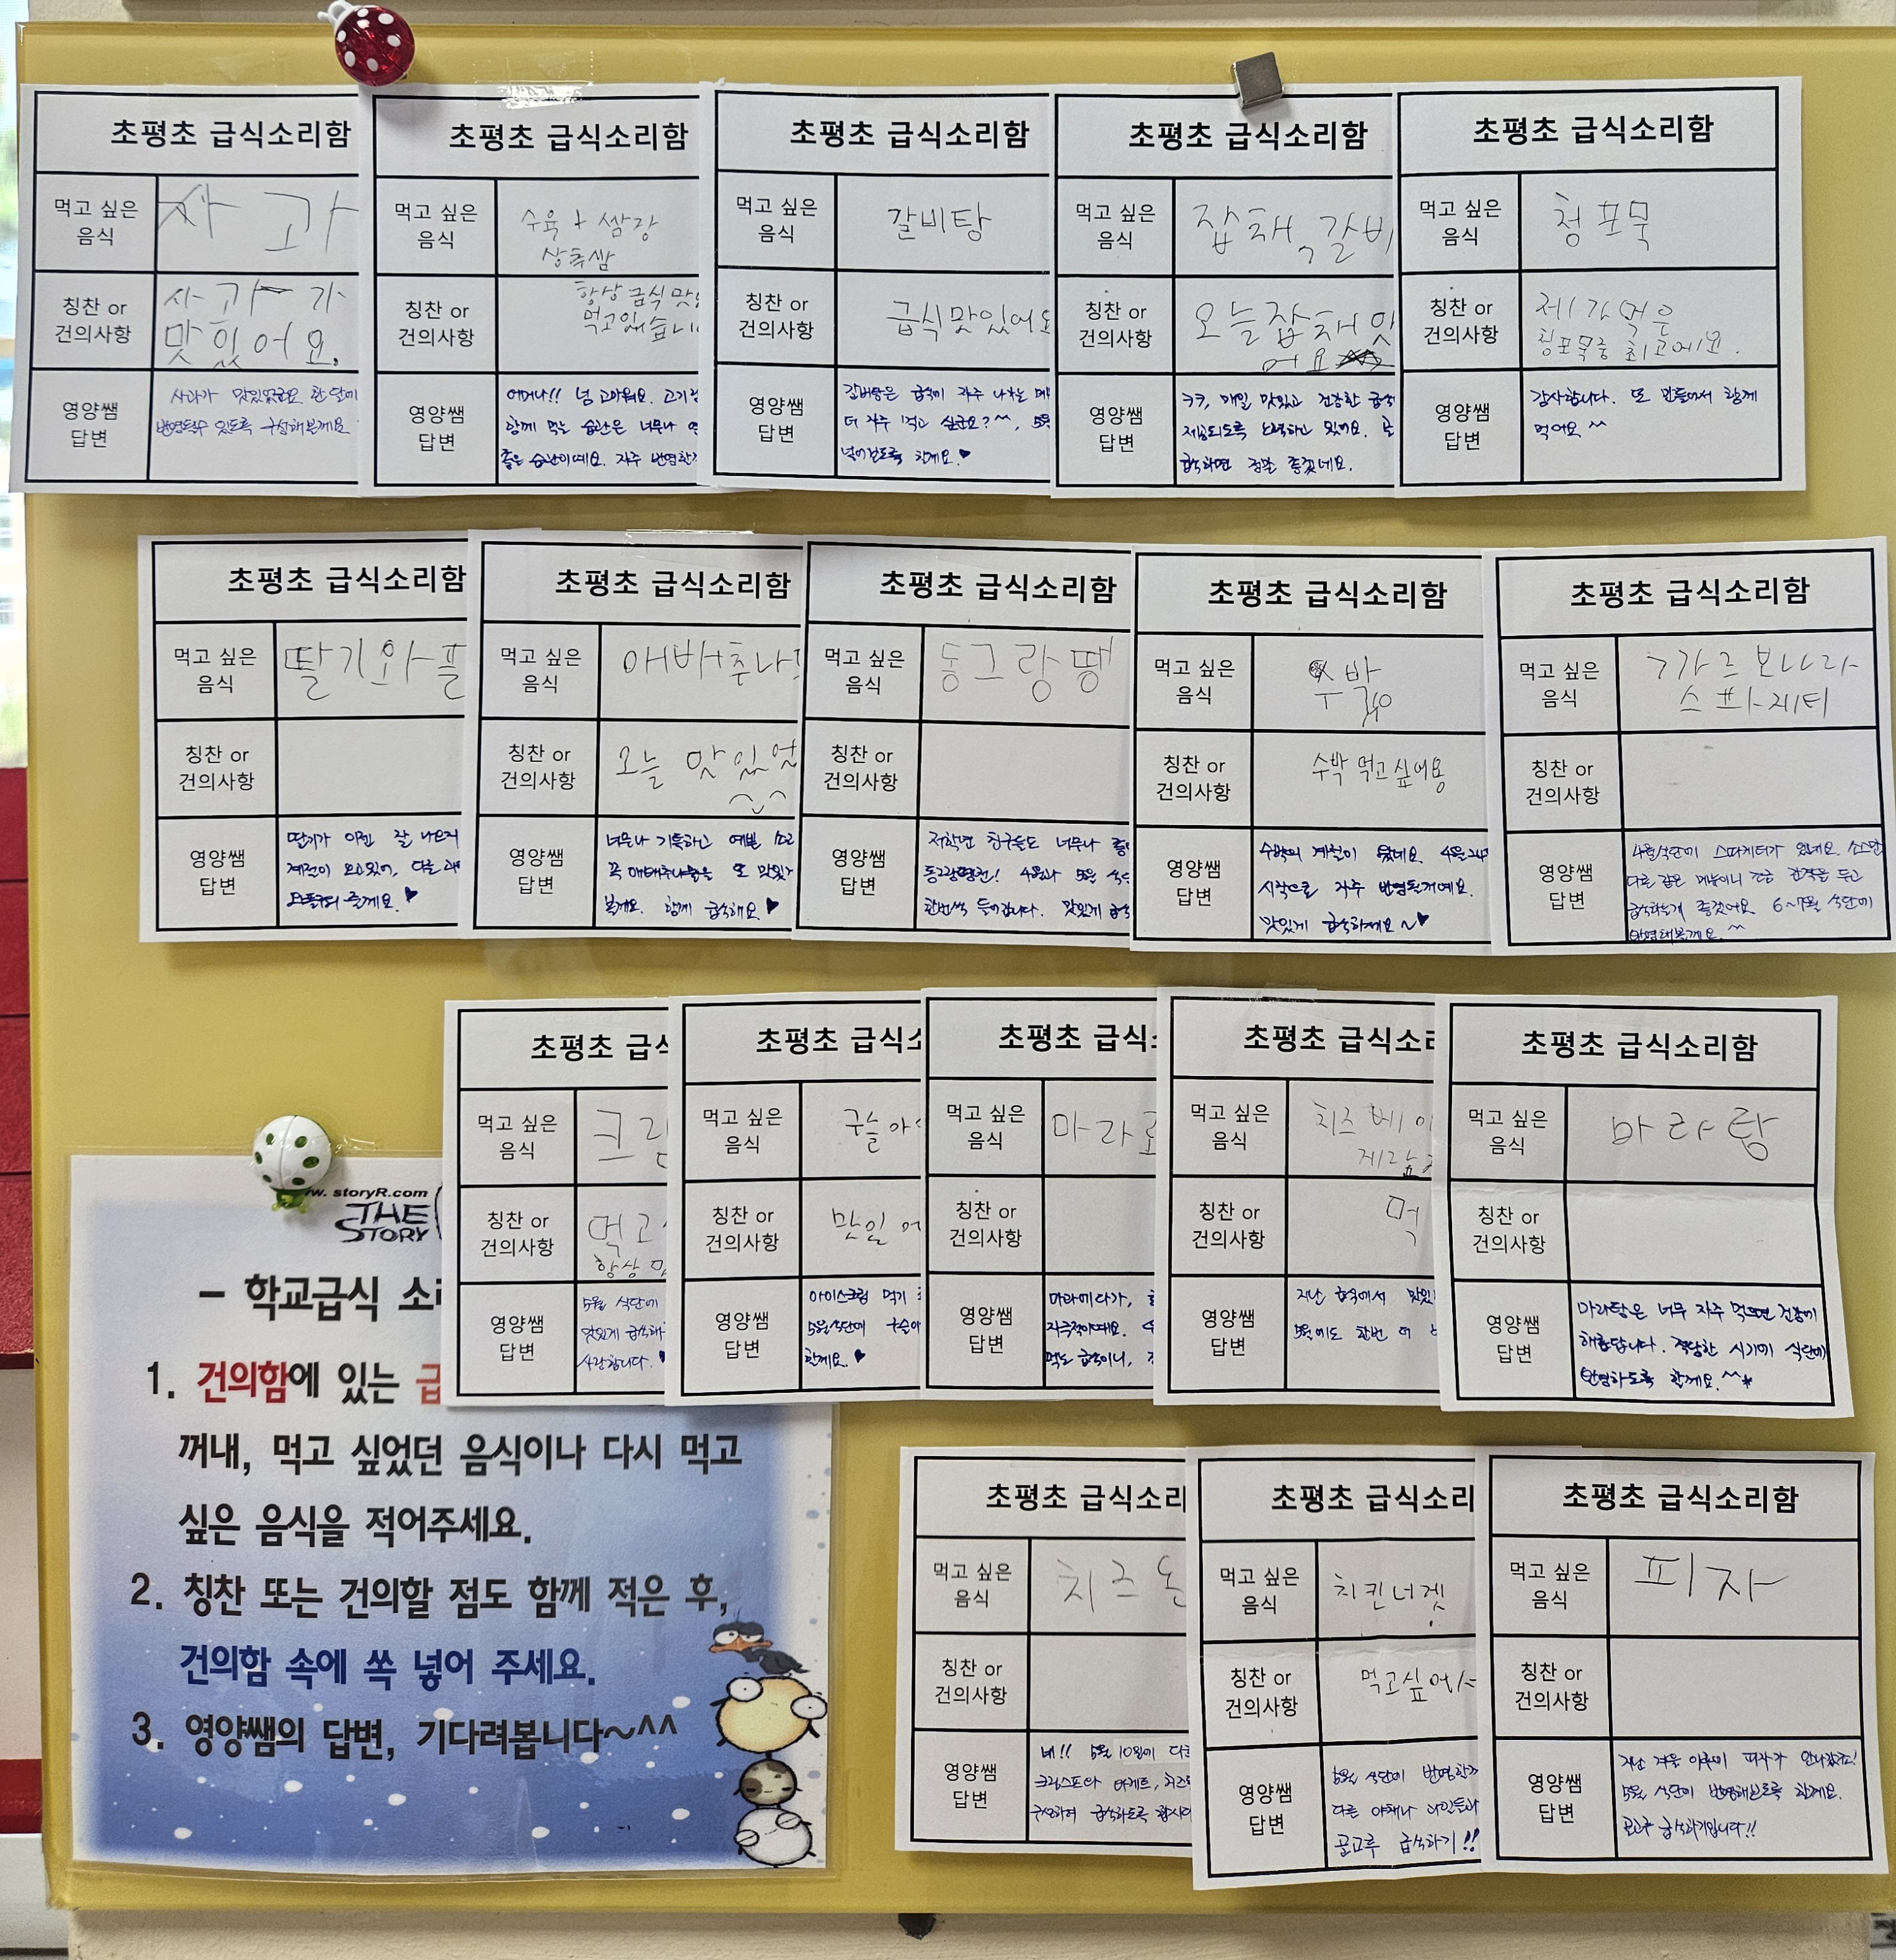 초평초 급식소리함
먹고 싶은
음식
사 과
칭찬 or
건의사항
사과가
맛있어요.
영양쌤
답변
사과가 맛있었군요. 한 달에
반영될 수 있도록 구성해볼게요
초평초 급식소리함
먹고 싶은
음식
수육 + 쌈장
상추쌈
칭찬 or
건의사항
항상 급식
먹고있습니
영양쌤
답변
어머나!! 넘 고마워요.
함께 먹는 습관은 너무나
좋은 습관이에요. 자주
초평초 급식소리함
먹고 싶은
음식
갈비탕
칭찬 or
건의사항
급식맛있어요
영양쌤
답변
갈비탕은 급식에 자주 나가는
더 자주 먹고 싶군요?^^,
넣어보도록 할게요.♥
초평초 급식소리함
먹고 싶은
음식
잡채, 갈비
칭찬 or
건의사항
오늘잡채맛
어요
영양쌤
답변
ㅋㅋ, 매일 맛있고 건강한 급식
제공되도록 노력하고 있어요.
급식하면 정말 좋겠네요.
초평초 급식소리함
먹고 싶은
음식
청포묵
칭찬 or
건의사항
제가먹은
청포묵중 최고에요.
영양쌤
답변
감사합니다. 또 만들어서 함께
먹어요^^
초평초 급식소리함
먹고 싶은
음식
딸기와플
칭찬 or
건의사항
영양쌤
답변
딸기가 이젠 잘 나오지
계절이 오고있어, 다른
만들어 줄게요.♥
초평초 급식소리함
먹고 싶은
음식
애배추나
칭찬 or
건의사항
오늘 맛있었
영양쌤
답변
너무나 기특하고 예쁜
꼭 애배추나물을 또
볼게요. 함께 급식해요.♥
초평초 급식소리함
먹고 싶은
음식
동그랑땡
칭찬 or
건의사항
영양쌤
답변
저학년 친구들도 너무나
동그랑땡전! 4월과 5월
한번씩 들어갑니다. 맛있게
초평초 급식소리함
먹고 싶은
음식
수박
칭찬 or
건의사항
수박 먹고싶어용
영양쌤
답변
수박의 계절이 왔네요. 4월24일
시작으로 자주 반영될거예요.
맛있게 급식하세요~♥
초평초 급식소리함
먹고 싶은
음식
까르보나라
스파게티
칭찬 or
건의사항
영양쌤
답변
4월식단에 스파게티가 있네요. 소스만
다른 같은 메뉴이니 조금 간격을 두고
급식하는게 좋겠어요. 6~7월 식단에
반영해볼게요.^^
초평초 급식
먹고 싶은
음식
크림
칭찬 or
건의사항
먹고
항상
영양쌤
답변
5월 식단에
맛있게 급식해
사랑합니다.
초평초 급식소
먹고 싶은
음식
구슬아
칭찬 or
건의사항
맛일
영양쌤
답변
아이스크림 먹기
5월식단에 구슬아
할게요.♥
초평초 급식
먹고 싶은
음식
마라
칭찬 or
건의사항
영양쌤
답변
마라에다가,
자극적이에요.
먹는 급식이니,
초평초 급식소리
먹고 싶은
음식
치즈베이
칭찬 or
건의사항
먹
영양쌤
답변
지난 급식에서 맛있
5월에도 한번 더
초평초 급식소리함
먹고 싶은
음식
마라탕
칭찬 or
건의사항
영양쌤
답변
마라탕은 너무 자주 먹으면 건강에
해롭답니다. 적당한 시기에 식단에
반영하도록 할게요.^^*
www.storyR.com
THE
STORY
– 학교급식 소리
1. 건의함에 있는 급
꺼내, 먹고 싶었던 음식이나 다시 먹고
싶은 음식을 적어주세요.
2. 칭찬 또는 건의할 점도 함께 적은 후,
건의함 속에 쏙 넣어 주세요.
3. 영양쌤의 답변, 기다려봅니다~^^
초평초 급식소리
먹고 싶은
음식
치즈돈
칭찬 or
건의사항
영양쌤
답변
네!! 5월 10일에
구성하여 급식하도록 합시다
초평초 급식소리
먹고 싶은
음식
치킨너겟
칭찬 or
건의사항
먹고싶어
영양쌤
답변
5월 식단에 반영할게
다른 야채나
골고루 급식하기!!
초평초 급식소리함
먹고 싶은
음식
피자
칭찬 or
건의사항
영양쌤
답변
지난 겨울 이후에 피자가 안나갔군요!
5월 식단에 반영해보도록 할게요.
골고루 급식하기입니다!!